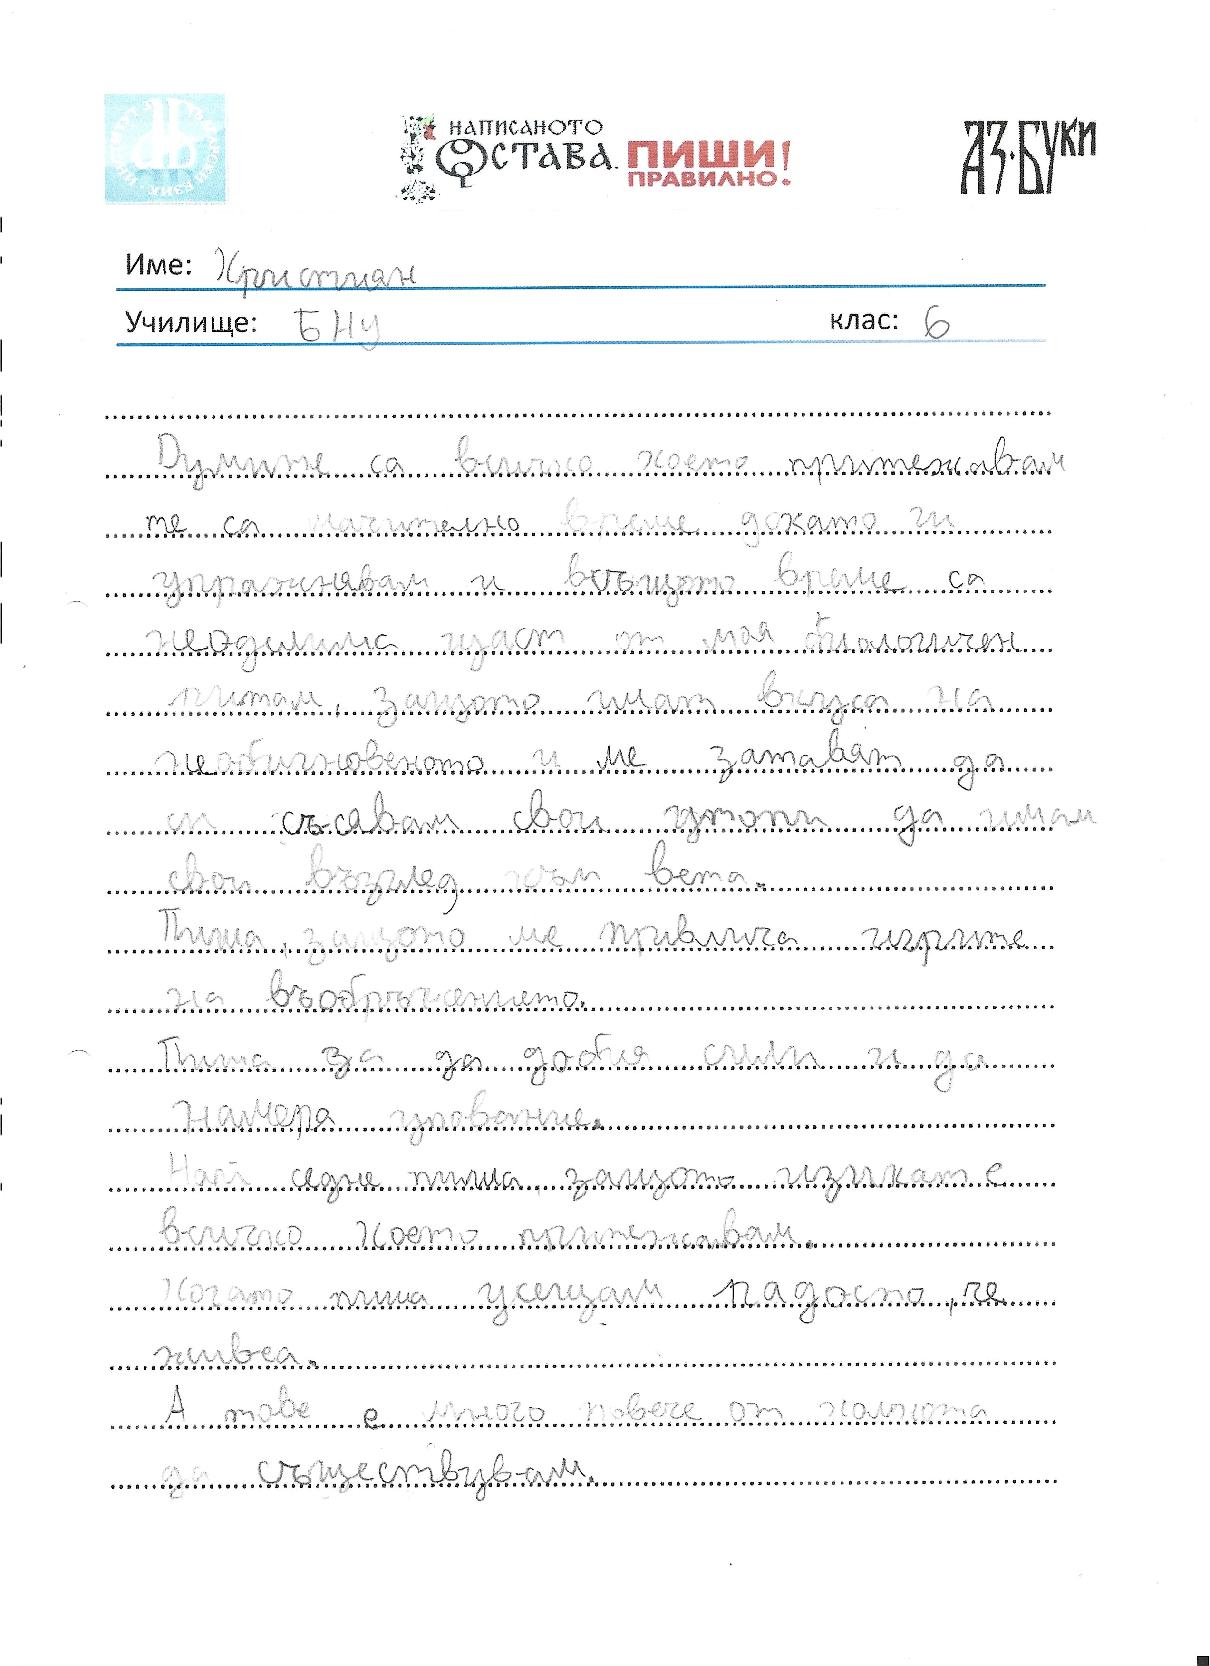 НАПИСАНОТО
ОСТАВА. ПИШИ!
ПРАВИЛНО!
АЗ·БУКИ
Име: Християн
Училище: БНУ клас: 6
Думите са всичко което притежавам
те са начително време докато ги
упражнявам и всъщото време са
неоделима част от моя биологичен
ритам, защото имат вкуса на
необикновеното и ме затават да
си съсявам свои утопи да имам
свои възглед към вета.
Пиша, защото ме привлича игрите
на въобръчението.
Пиша за да добия сили и да
намеря упование.
Най седне пиша, защото изикат е
всичко което притежавам.
Когато пиша усещам радосто, че
живеа.
А тове е много повече от колкота
да съществувам.